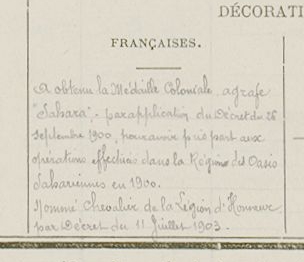 DÉCORATI
FRANÇAISES.
A obtenu la Médaille Coloniale agrafe
"Sahara". par application du Décret du 26
septembre 1900, pour avoir pris part aux
opérations effectuées dans la Région des Oasis
Sahariennes en 1900.
Nommé Chevalier de la Légion d'Honneur
par Décret du 11 Juillet 1903.